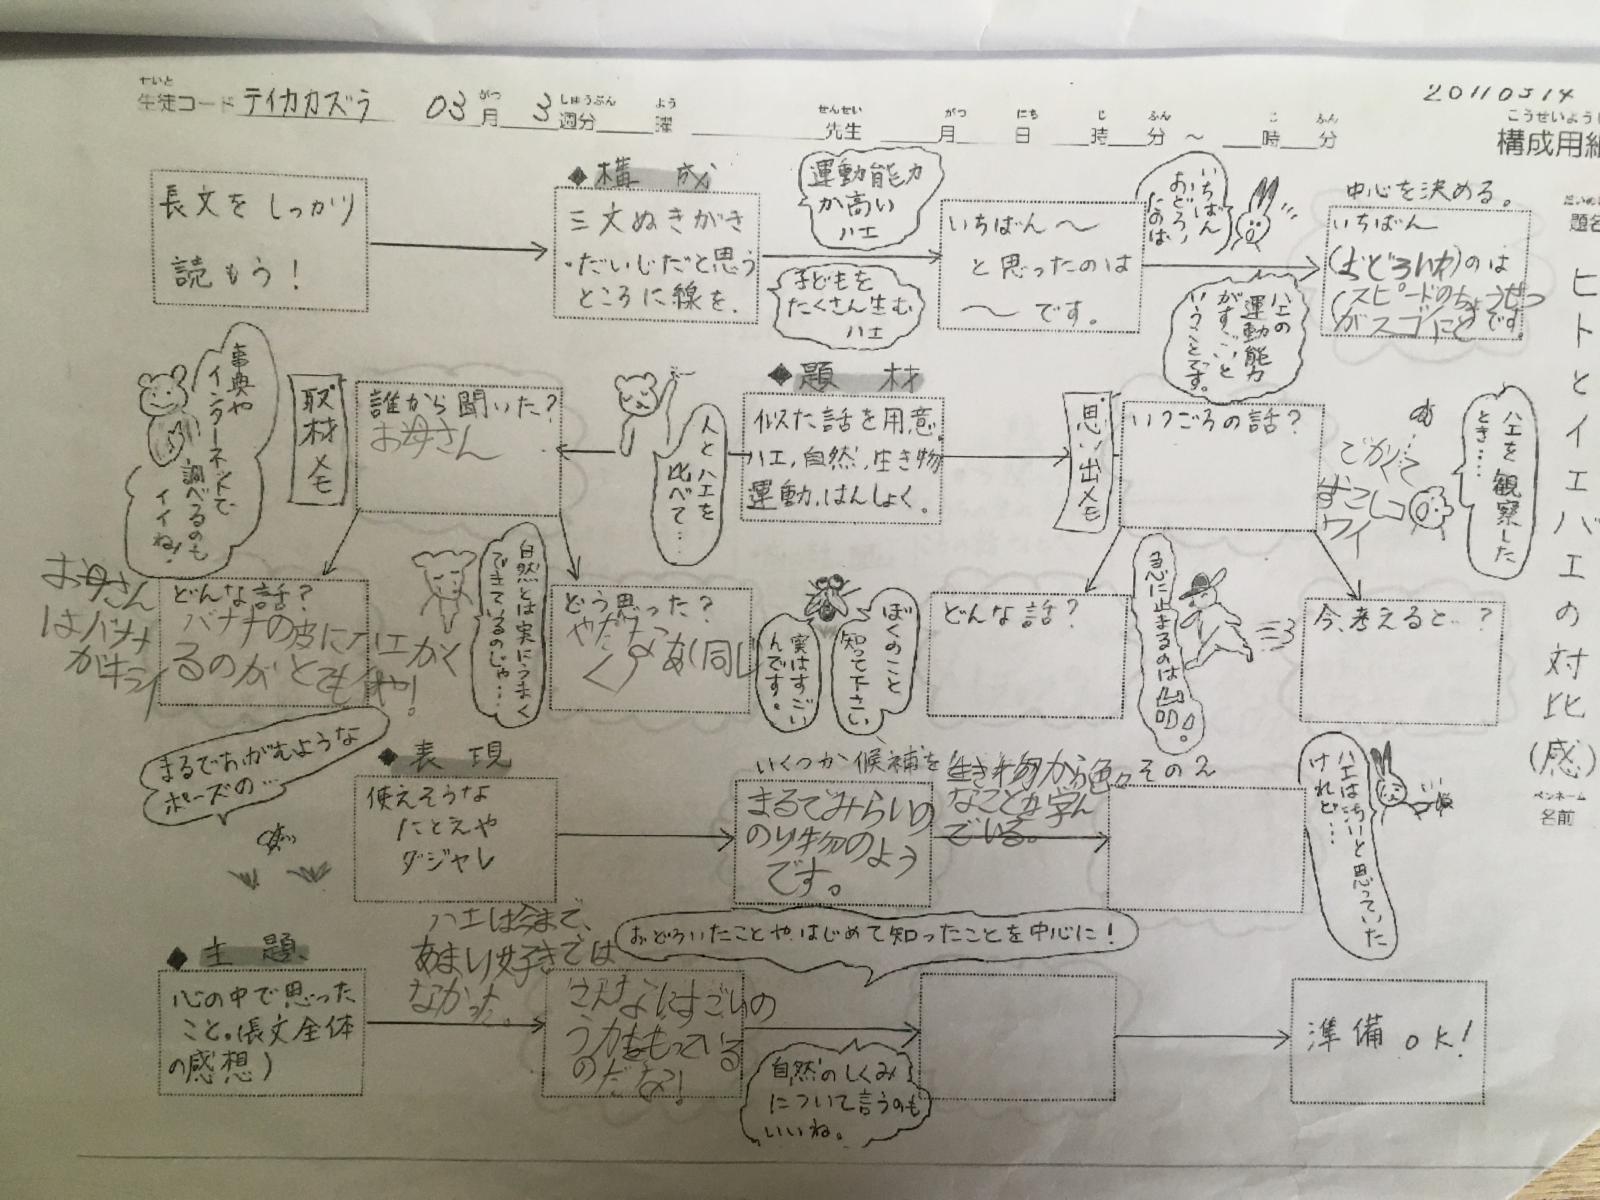 20110314
せいと
生徒コード テイカカズラ 03月 3週分 曜
がつ しゅうぶん よう
せんせい がつ にち じ ふん じ ふん
先生 月 日 時 分 ～ 時 分
こうせいようし
構成用紙
題名
ヒトとイエバエの対比(感)
ペンネーム
名前
長文をしっかり
読もう!
◆構成
三文ぬきがき
・だいじだと思う
ところに線を.
運動能力
が高い
ハエ
子どもを
たくさん生む
ハエ
いちばん～
と思ったのは
～です。
いちばん
おどろい
たのは
ハエの
運動能力
がすごいと
いうことです。
中心を決める。
いちばん
(おどろいた)のは
がスゴいことです。
事典や
インターネットで
調べるのも
イイね!
取材メモ
誰から聞いた?
お母さん
人とハエを
比べて…
◆題材
似た話を用意.
ハエ,自然,生き物
運動,はんしょく.
思い出メモ
いつごろの話?
でかくて
ハエを観察した
とき……
お母さん
はバナナ
がキライ
どんな話?
バナナの皮にハエがく
るのがとてもイヤ!
自然とは実にうまく
できているのじゃ…
どう思った?
実はすごい
んです。
ぼくのこと
知って下さい
どんな話?
急に止まるのは
今,考えると…?
まるでおがむような
ポーズの…
◆表現
使えそうな
たとえや
ダジャレ
いくつか候補を
まるでみらいの
のり物のよう
です。
生き物から色々
なことを学ん
でいる。
その2
ハエは汚いと思っていた
けれど…
◆主題
心の中で思った
こと。(長文全体
の感想)
ハエは今まで、
あまり好きでは
なかった。
おどろいたことや,はじめて知ったことを中心に!
こんなにすごいの
う力をもっている
のだな!
自然のしくみ
について言うのも
いいね。
準備OK!